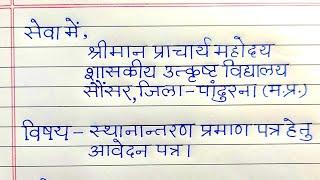 सेवा में,
श्रीमान प्राचार्य महोदय
शासकीय उत्कृष्ट विद्यालय
सौंसर, जिला - पांढुरना (म.प्र.)
विषय - स्थानान्तरण प्रमाण पत्र हेतु
आवेदन पत्र।